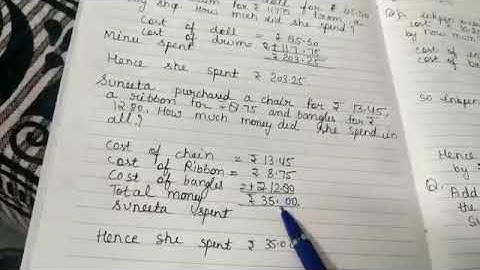 a drum for ₹ 117.75
toy shop. How much did she spend?
Cost of doll = ₹ 85.50
Cost of drum = ₹ + 117.75
Minu spent ₹ 203.25
Hence she spent ₹ 203.25
Suneeta purchased a chair for ₹ 13.45,
a ribbon for ₹ 8.75 and bangles for ₹
12.80. How much money did she spend in
all?
Cost of chain = ₹ 13.45
Cost of Ribbon = ₹ 8.75
Cost of bangles = + ₹ 12.80
Total money ₹ 35.00
Suneeta spent
Hence she spent ₹ 35.0
cost of
cost of
So
Hence
by
Q. Add
the
S